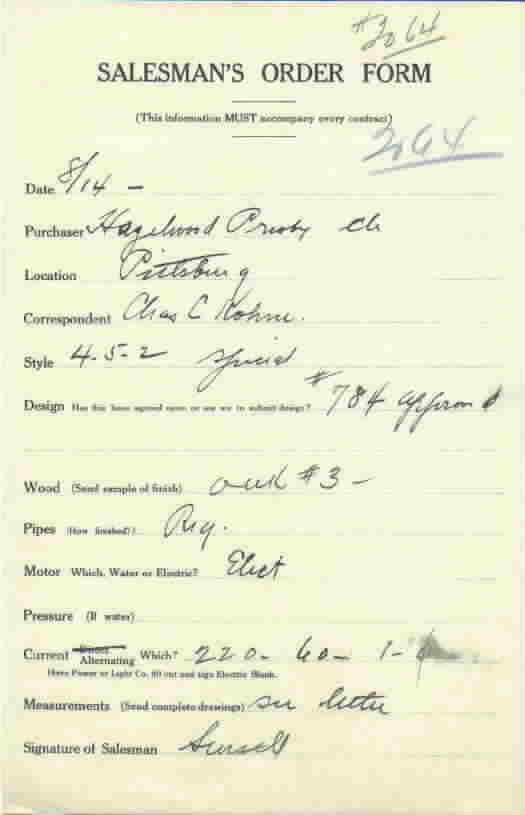 #2064
SALESMAN'S ORDER FORM
(This information MUST accompany every contract)
2064
Date 8/14 -
Purchaser Hazelwood Presby ch
Location Pittsburg
Correspondent Chas C Kohne.
Style 4-5-2 special
Design Has this been agreed upon or are we to submit design? #784 approv d
Wood (Send sample of finish) oak #3 -
Pipes (How finished)? Reg.
Motor Which, Water or Electric? Elect
Pressure (If water)
Current Direct Alternating Which? 220- 60- 1-
Have Power or Light Co. fill out and sign Electric Blank.
Measurements (Send complete drawings) see letter
Signature of Salesman